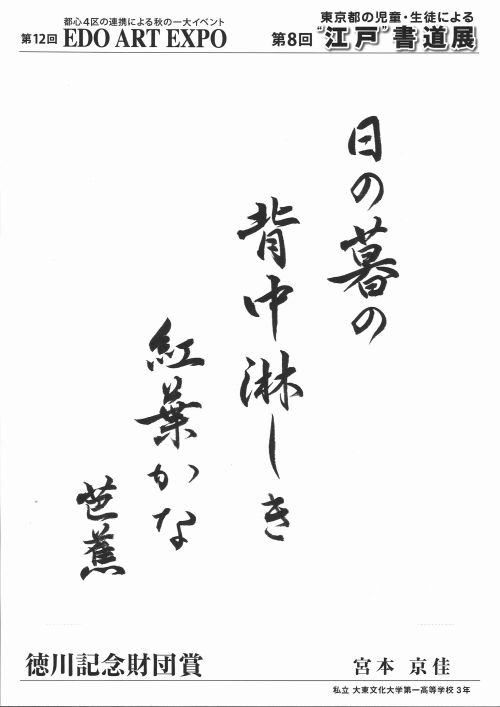 都心4区の連携による秋の一大イベント
第12回 EDO ART EXPO
東京都の児童・生徒による
第8回 "江戸"書道展
日の暮の
背中淋しき
紅葉かな
芭蕉
徳川記念財団賞
宮本 京佳
私立 大東文化大学第一高等学校 3年